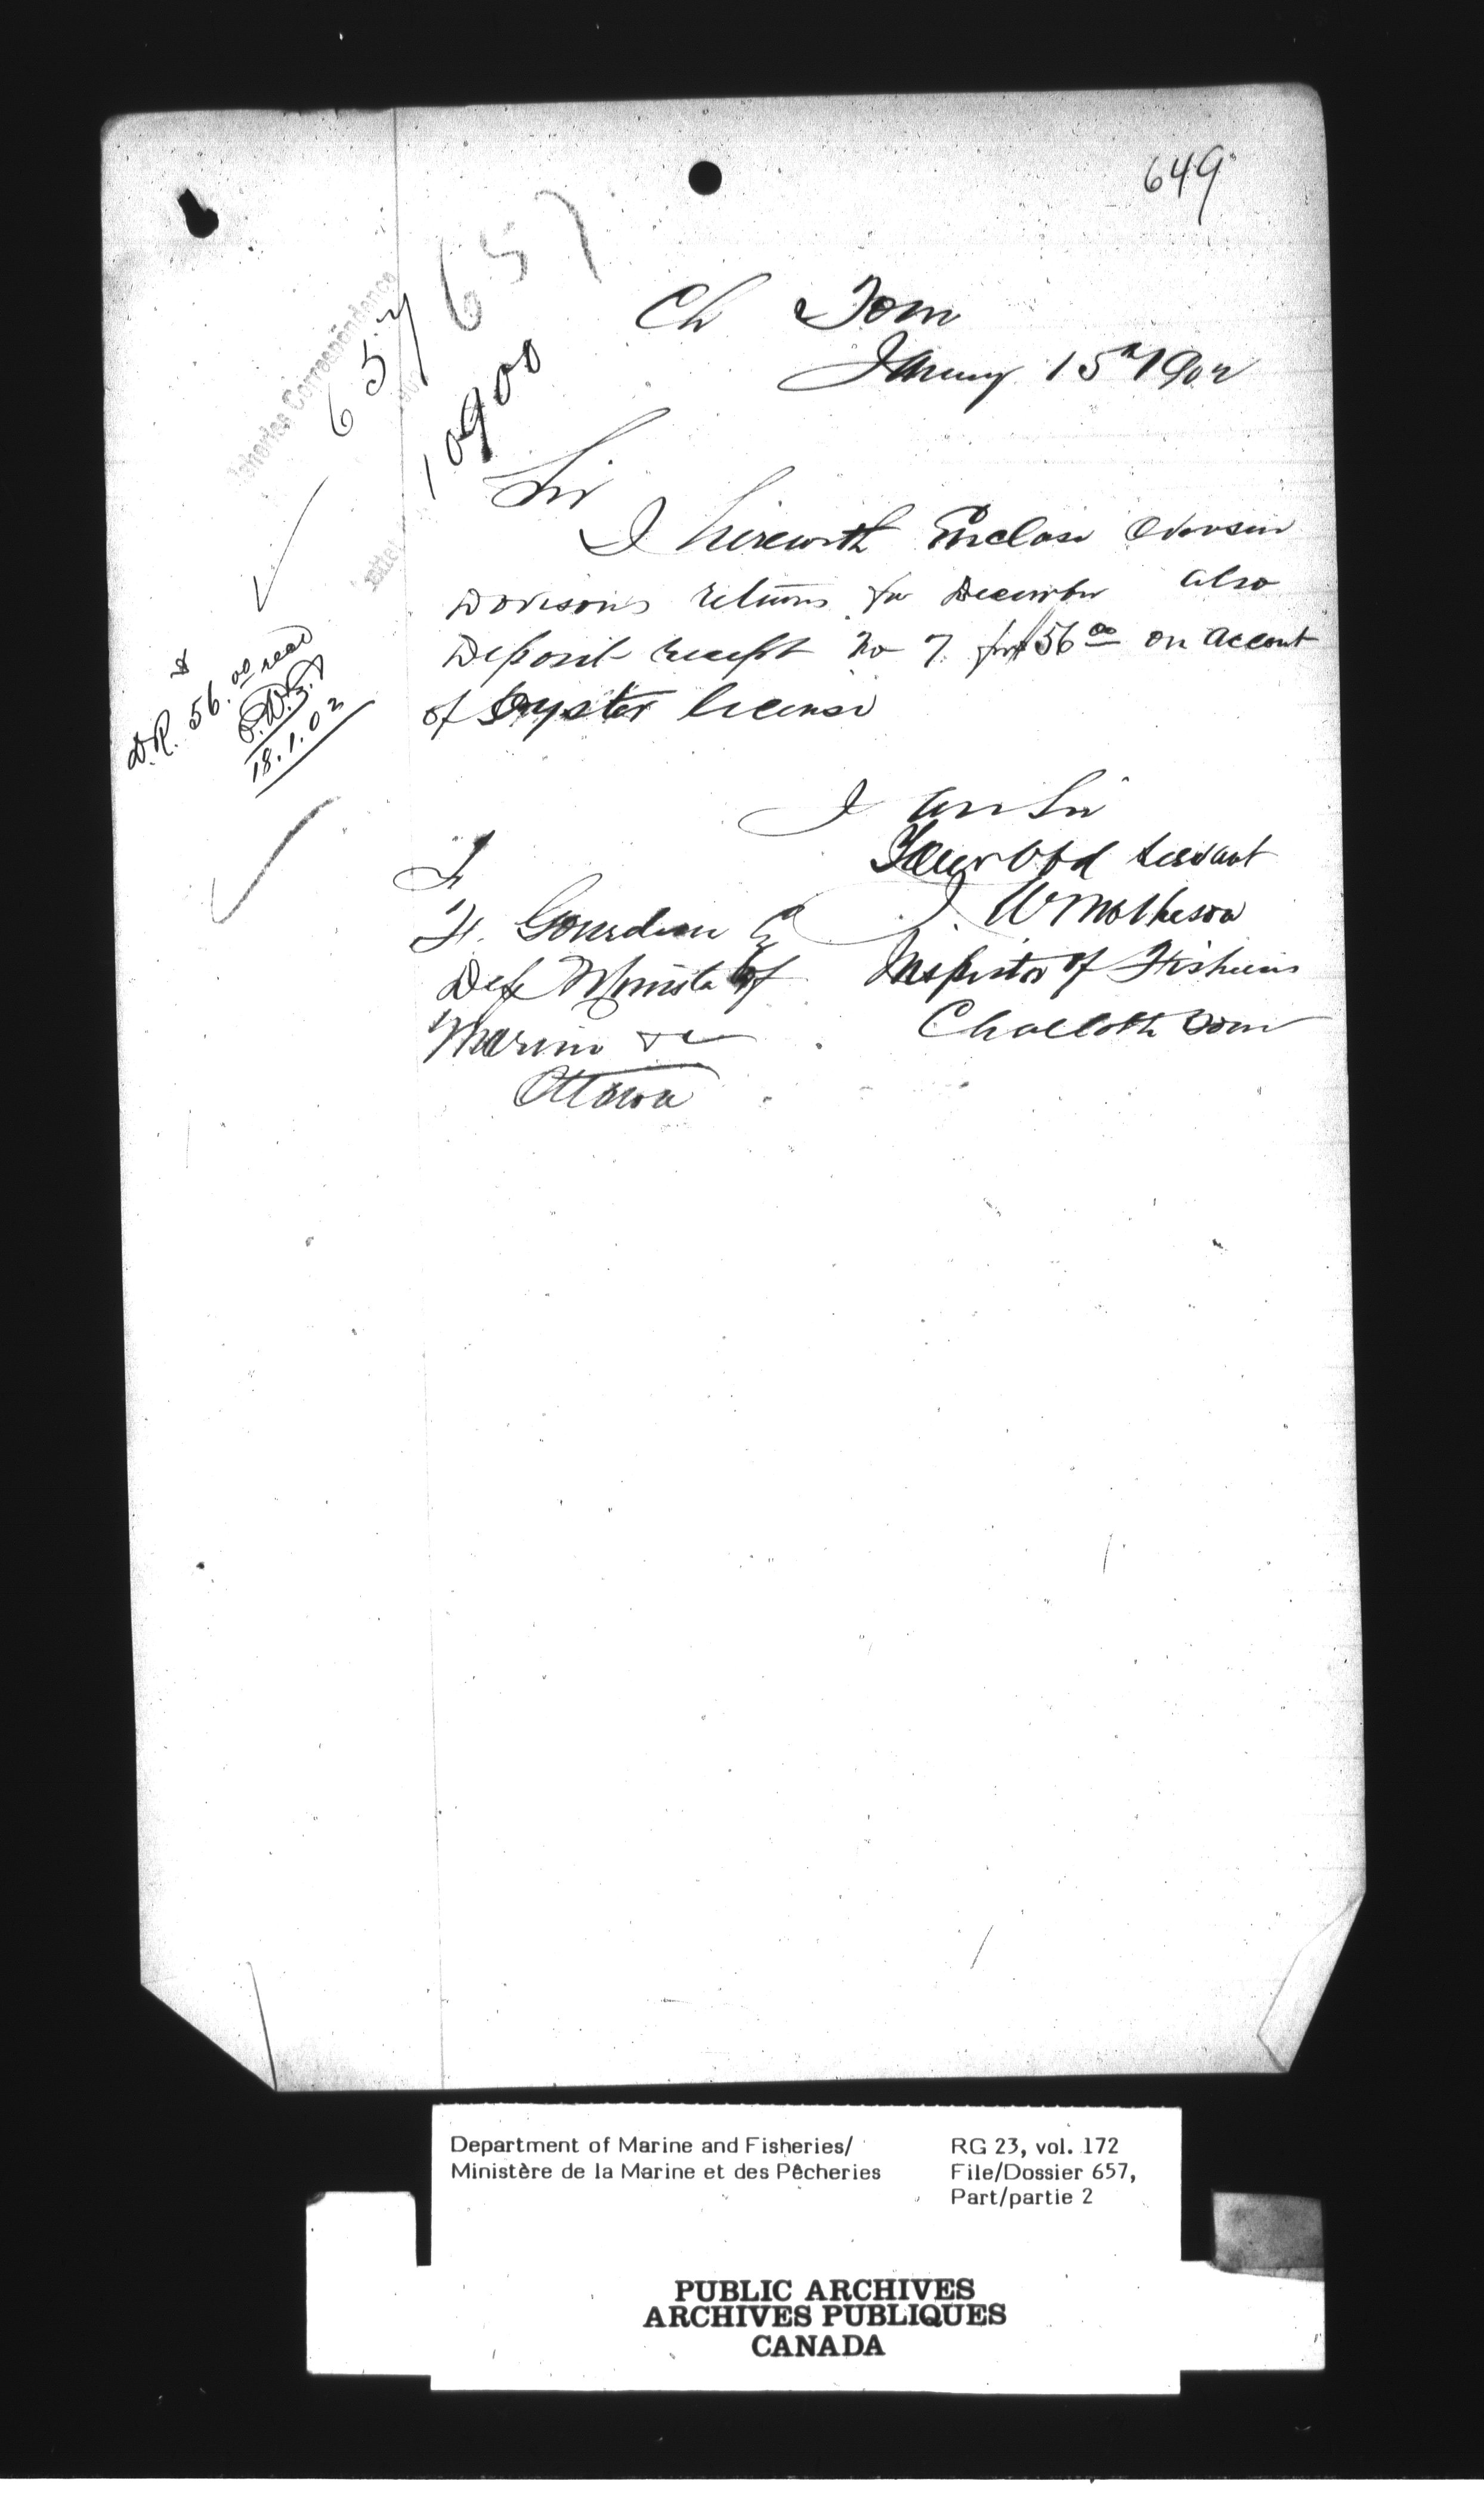 649
657
Fisheries Correspondence
657
10900
Ch Town
January 15th 1902
Sir
I herewith Enclose Overseer
Davisons returns for December also
Deposit receipt No 7 for $56 00 on account
of Oyster License
$
D.R. 56. 00 recd
18.1.02
I am Sir
Your Obd Servant
J W Matheson
Inspector of Fisheries
Charlotte Town
F. Gourdeau Esq
Dep Minister of
Marine &c
Ottawa
Department of Marine and Fisheries/
Ministère de la Marine et des Pêcheries
RG 23, vol. 172
File/Dossier 657,
Part/partie 2
PUBLIC ARCHIVES
ARCHIVES PUBLIQUES
CANADA